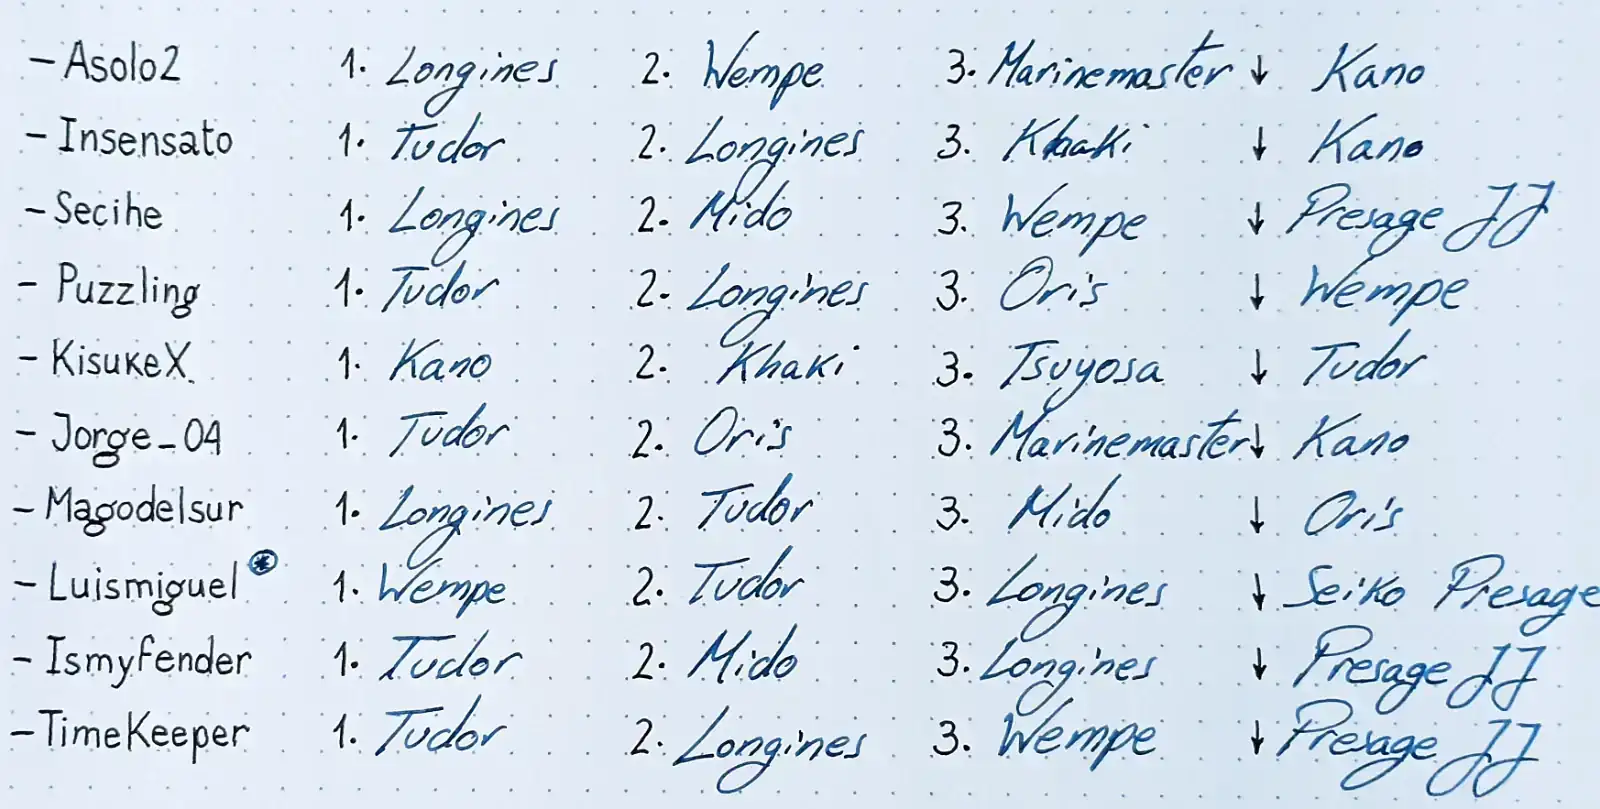 - Asolo2 1. Longines 2. Wempe 3. Marinemaster ↓ Kano
- Insensato 1. Tudor 2. Longines 3. Khaki ↓ Kano
- Secihe 1. Longines 2. Mido 3. Wempe ↓ Presage JJ
- Puzzling 1. Tudor 2. Longines 3. Oris ↓ Wempe
- KisukeX 1. Kano 2. Khaki 3. Tsuyosa ↓ Tudor
- Jorge_04 1. Tudor 2. Oris 3. Marinemaster ↓ Kano
- Magodelsur 1. Longines 2. Tudor 3. Mido ↓ Oris
- Luismiguel * 1. Wempe 2. Tudor 3. Longines ↓ Seiko Presage
- Ismyfender 1. Tudor 2. Mido 3. Longines ↓ Presage JJ
- TimeKeeper 1. Tudor 2. Longines 3. Wempe ↓ Presage JJ